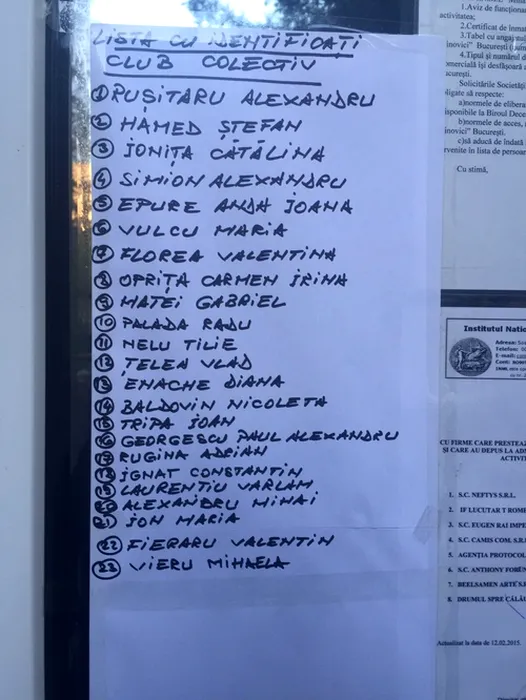 LISTA CU IDENTIFICAȚI
CLUB COLECTIV
1 RUȘITARU ALEXANDRU
2 HAMED ȘTEFAN
3 IONIȚA CĂTĂLINA
4 SIMION ALEXANDRU
5 EPURE ANDA IOANA
6 VULCU MARIA
7 FLOREA VALENTINA
8 OPRIȚA CARMEN IRINA
9 MATEI GABRIEL
10 PALADA RADU
11 NELU TILIE
12 ȚELEA VLAD
13 ENACHE DIANA
14 BALDOVIN NICOLETA
15 TRIPA IOAN
16 GEORGESCU PAUL ALEXANDRU
17 RUGINA ADRIAN
18 IGNAT CONSTANTIN
19 LAURENTIU VARLAM
20 ALEXANDRU MIHAI
21 ION MARIA
22 FIERARU VALENTIN
23 VIERU MIHAELA
1.Aviz de funcționar
activitatea;
2.Certificat de înmat
3.Tabel cu angaj
inovici" București
4.Tipul și numărul d
comercială își desfășoară
ucurești.
Solicitările Societăț
ligate să respecte:
a)normele de elibera
isponibile la Biroul Dece
b)normele de acces,
inovici" București.
c)să aducă de îndată
rvenite în lista de persoan
Cu stimă,
Institutul Națio
Adresa: Șos
Telefon:
CU FIRME CARE PRESTEA
ȘI CARE AU DEPUS LA AD
ACTIVIT
1. S.C. NEFTYS S.R.L.
2. IF LUCUTAR T ROME
3. S.C. EUGEN RAI IMPE
4. S.C. CAMIS COM. S.R.
5. AGENȚIA PROTOCOL
6. S.C. ANTHONY FOREN
7. BEELSAMEN ARTE S.
8. DRUMUL SPRE CĂLĂU
Actualizat la data de 12.02.2015.